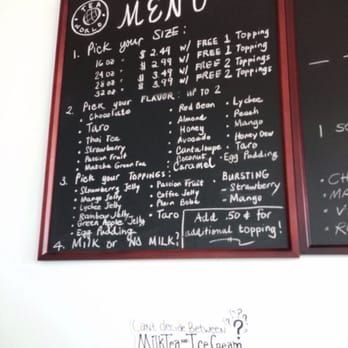 TEA WORLD
MENU
1. Pick your SIZE:
16 oz $2.49 w/ FREE 1 Topping
24 oz $2.99 w/ FREE 1 Topping
28 oz $3.49 w/ FREE 2 Toppings
32 oz $3.99 w/ FREE 2 Toppings
2. Pick your FLAVOR: up to 2
• Chocolate • Red Bean • Lychee
• Taro • Almond • Peach
• Thai Tea • Honey • Mango
• Strawberry • Avocado • Honey Dew
• Passion Fruit • Cantaloupe • Taro
• Matcha Green Tea • Coconut • Egg Pudding
• Caramel
3. Pick your TOPPINGS: BURSTING
• Strawberry Jelly • Passion Fruit • Strawberry
• Mango Jelly • Coffee Jelly • Mango
• Lychee Jelly • Plain Boba
• Rainbow Jelly • Taro
• Green Apple Jelly
• Egg Pudding
Add .50¢ for additional topping!
4. Milk or No Milk?
1 S
CH
MA
V
R
Can't decide Between
MilkTea or Ice Cream
???